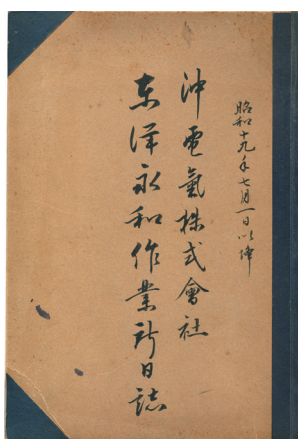 昭和十九年七月一日以降
沖電氣株式會社
東洋永和作業所日誌